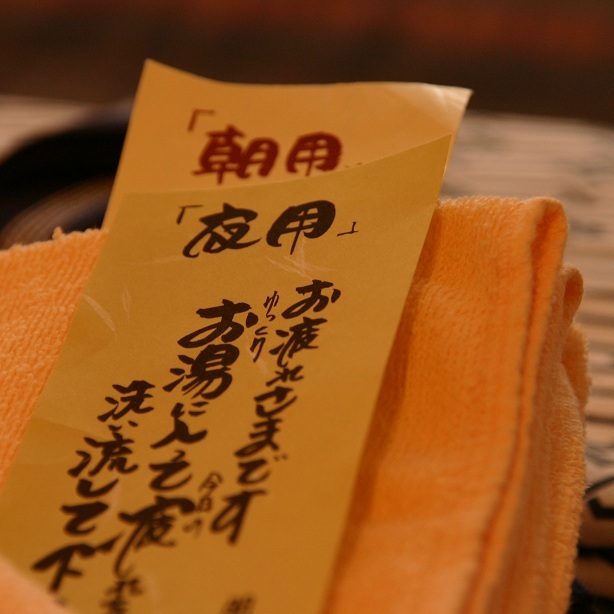 「朝用
「夜用」
お疲れさまです
ゆっくり
お湯に入って
今日の
疲れを
洗い流して下